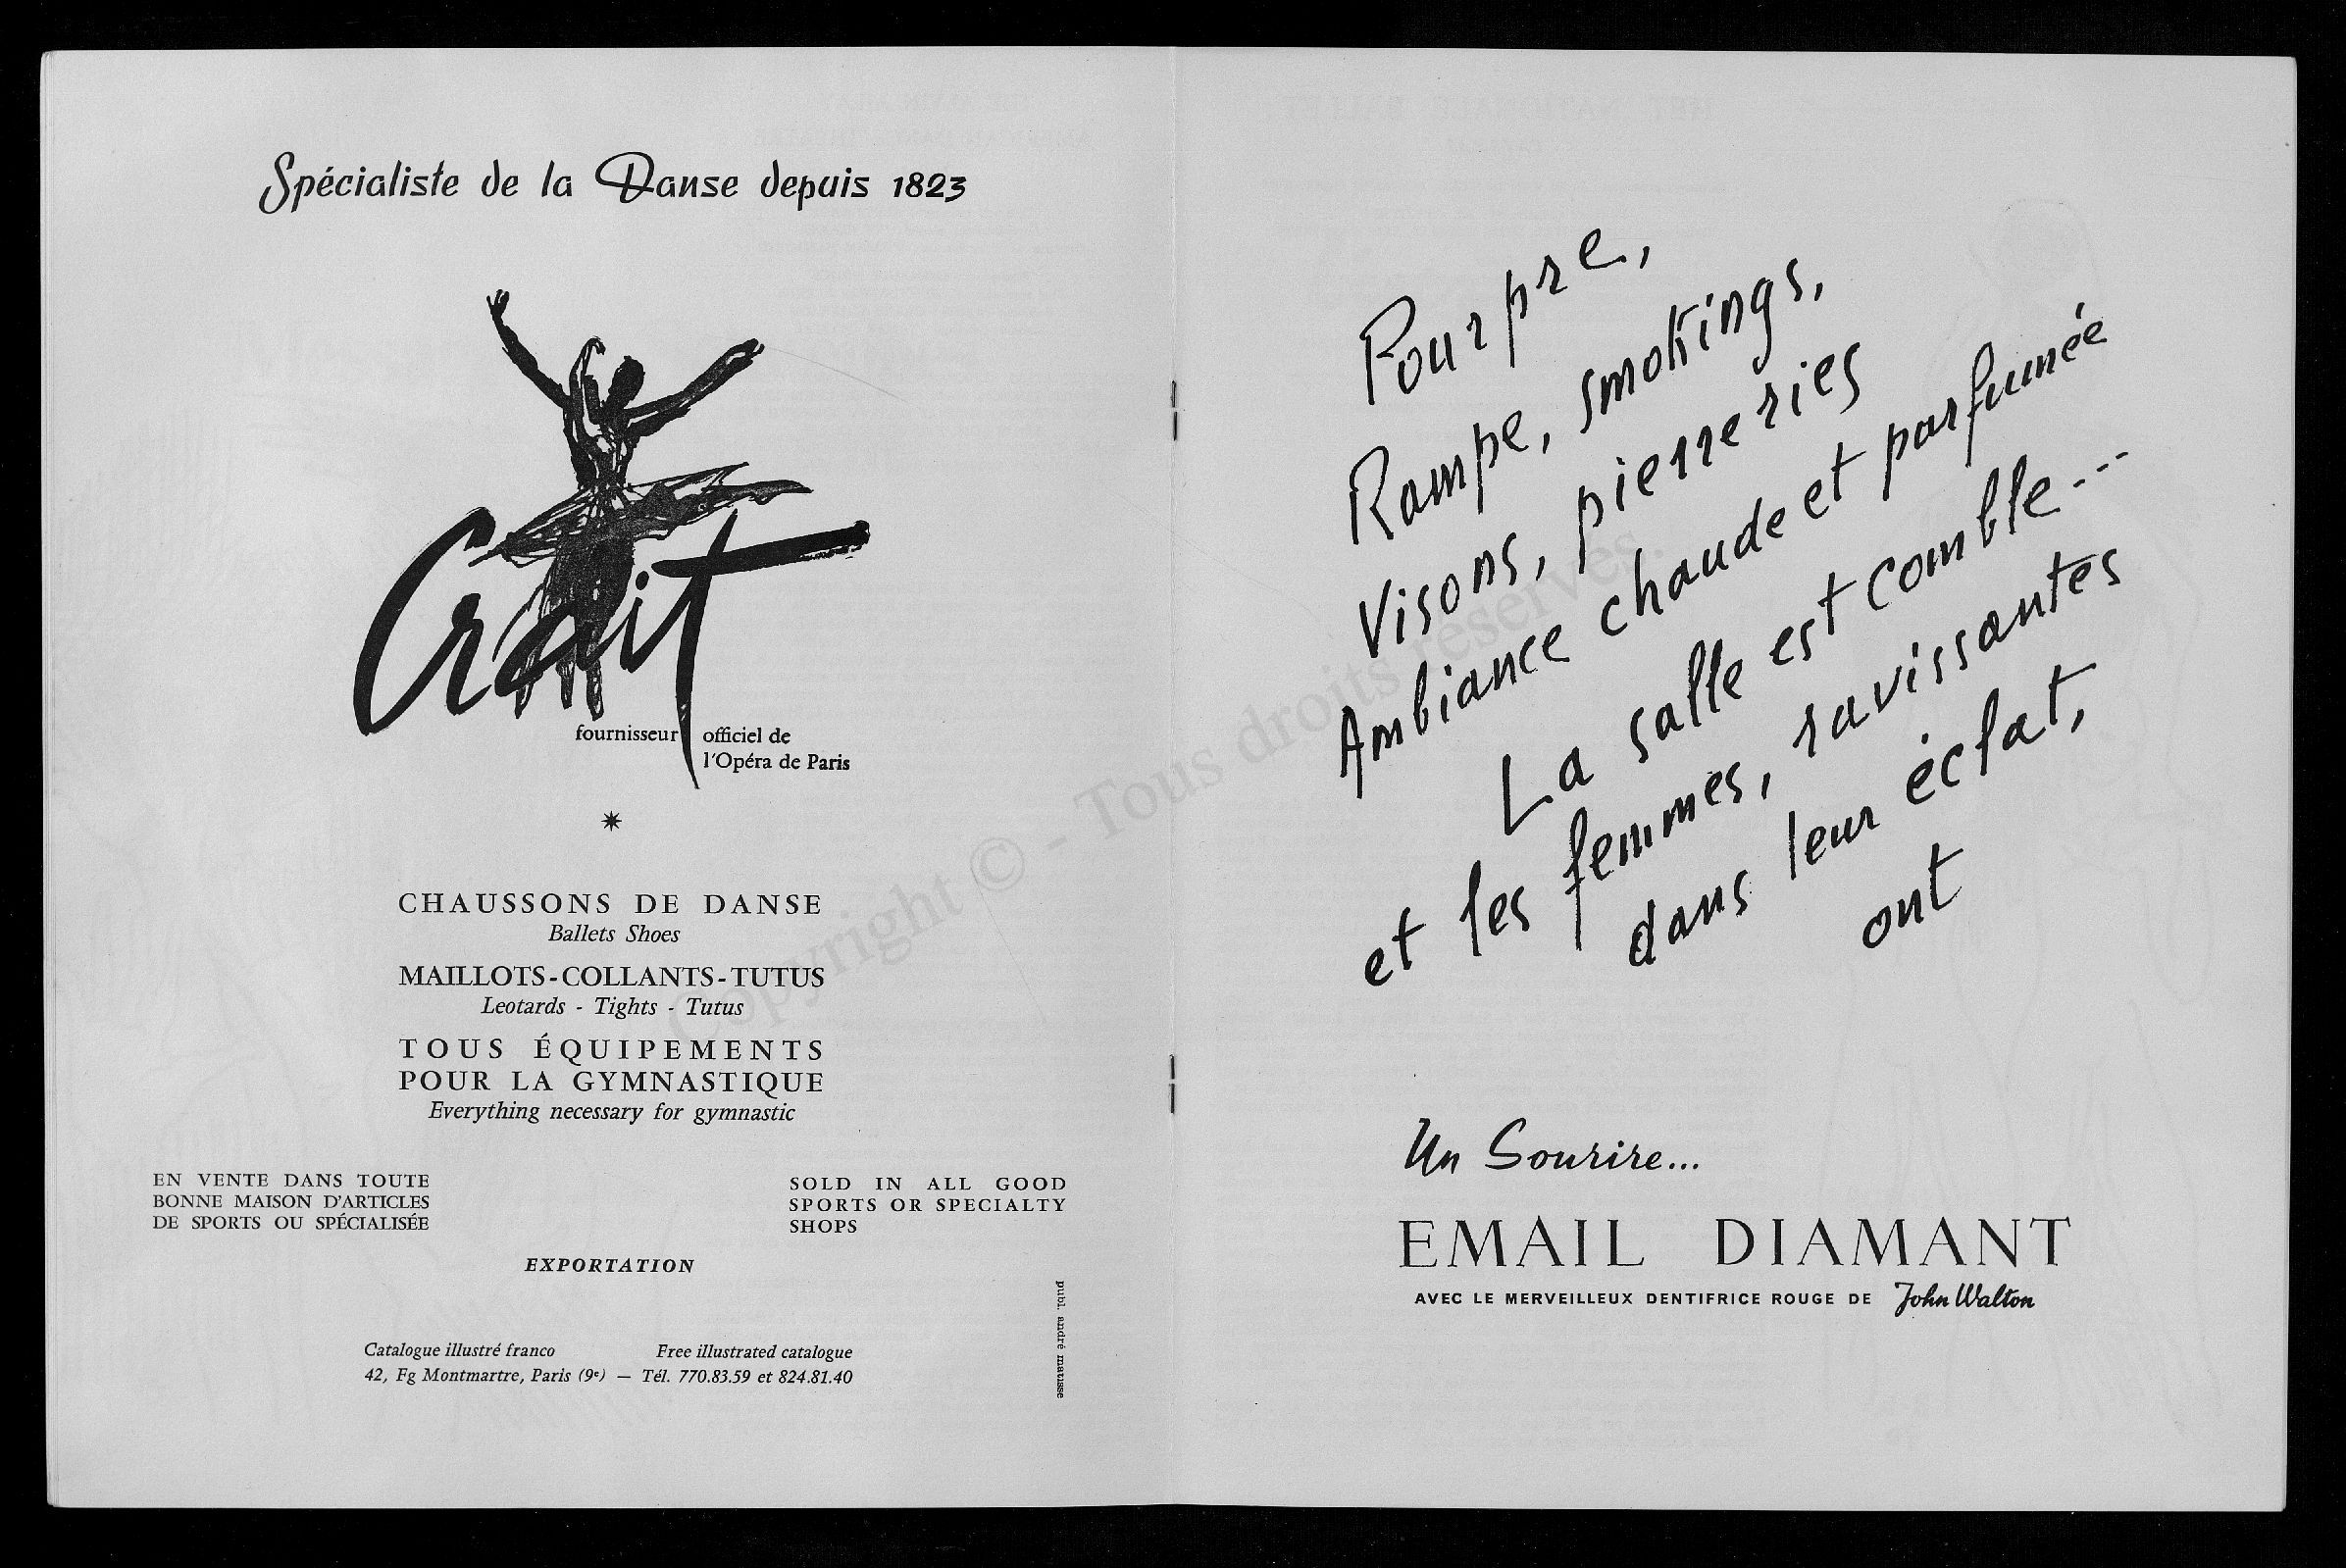 Spécialiste de la Danse depuis 1823
Crait
fournisseur officiel de
l'Opéra de Paris
CHAUSSONS DE DANSE
Ballets Shoes
MAILLOTS-COLLANTS-TUTUS
Leotards - Tights - Tutus
TOUS ÉQUIPEMENTS
POUR LA GYMNASTIQUE
Everything necessary for gymnastic
EN VENTE DANS TOUTE
BONNE MAISON D'ARTICLES
DE SPORTS OU SPÉCIALISÉE
SOLD IN ALL GOOD
SPORTS OR SPECIALTY
SHOPS
EXPORTATION
Catalogue illustré franco
Free illustrated catalogue
42, Fg Montmartre, Paris (9e) — Tél. 770.83.59 et 824.81.40
publ. andré matusse
Pourpre,
Rampe, smokings,
Visons, pierreries
Ambiance chaude et parfumée
La salle est comble...
et les femmes, ravissantes
dans leur éclat,
ont
Un Sourire...
EMAIL DIAMANT
AVEC LE MERVEILLEUX DENTIFRICE ROUGE DE John Walton
Copyright © - Tous droits réservés.